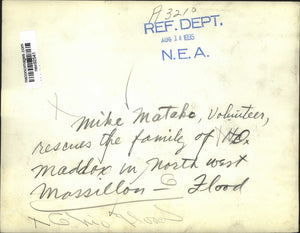 A 3210
REF. DEPT.
AUG 14 1935
N.E.A.
Mike Matako, Volunteer,
rescues the family of
Maddox in North west
Massillon — Flood
Ohio Flood